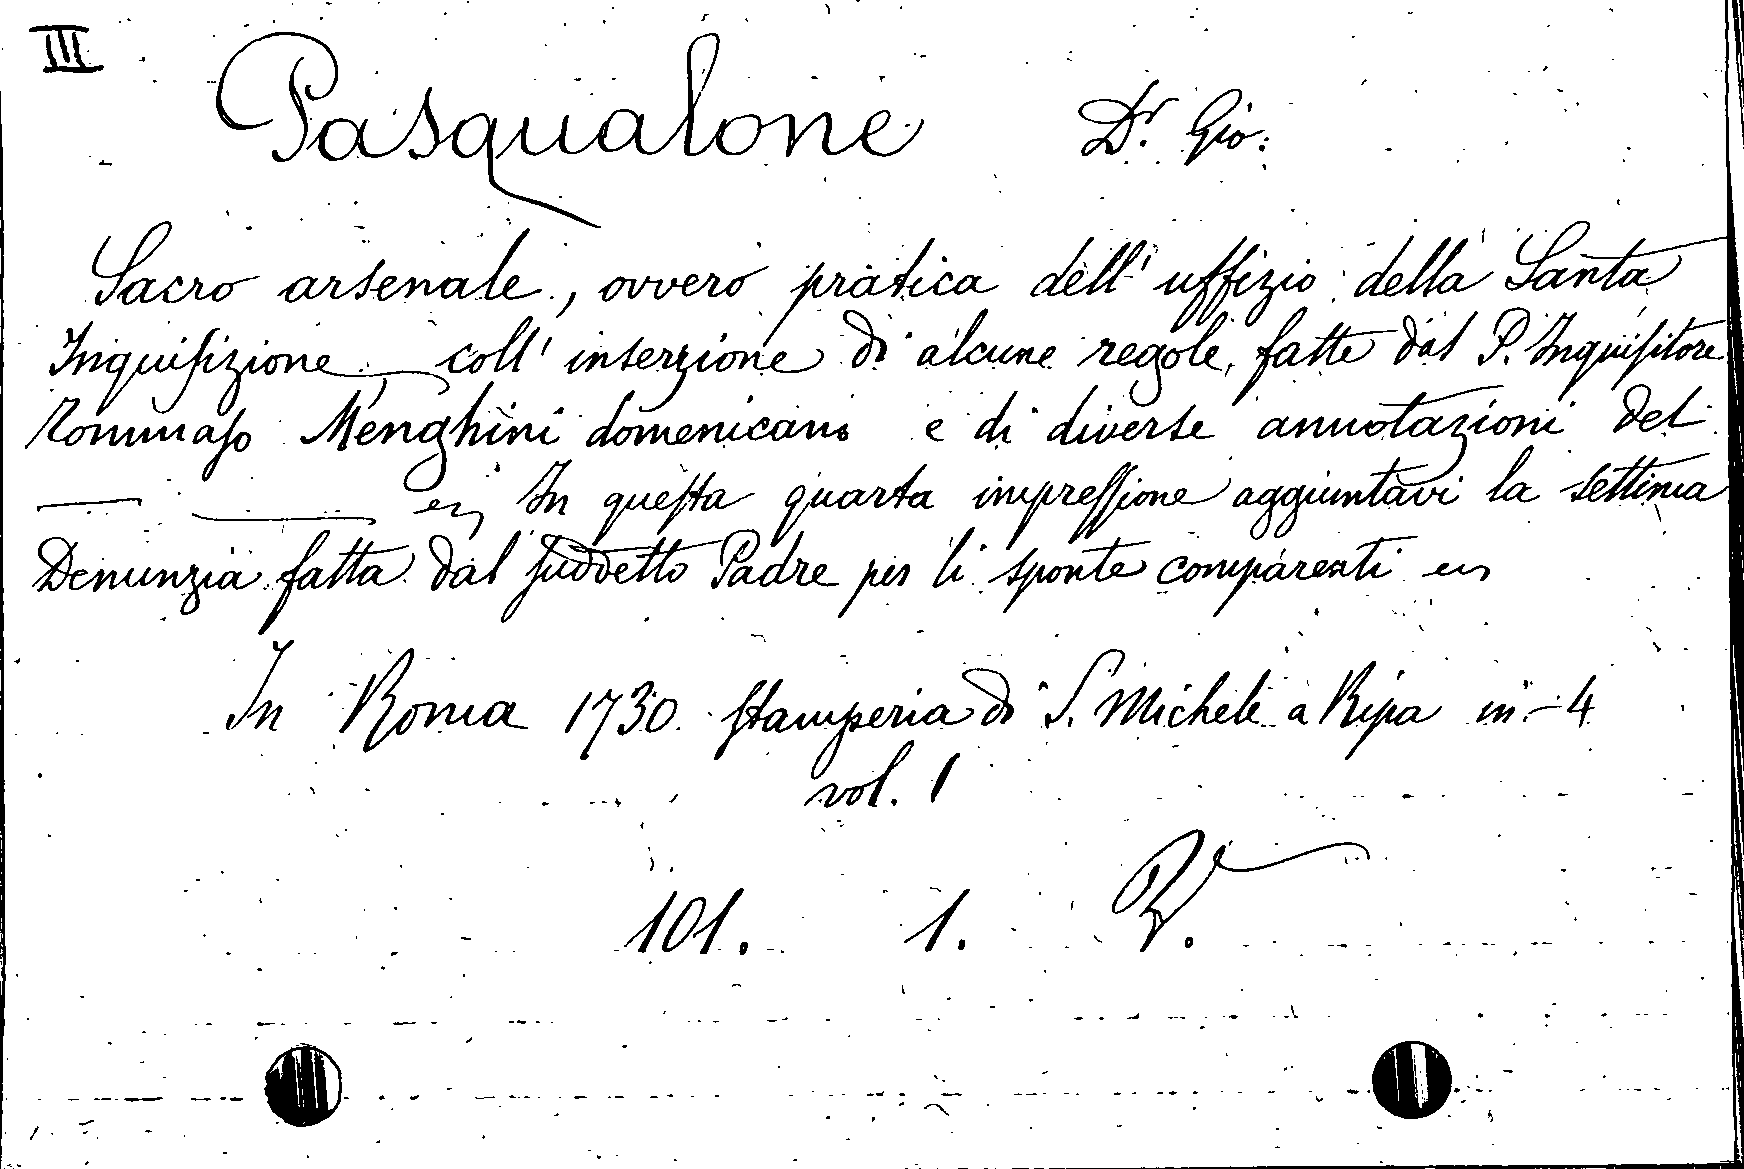 III
Pasqualone Dr. Gio:
Sacro arsenale, ovvero pratica dell' uffizio della Santa
Inquisizione coll' inserzione di alcune regole fatte dal P. Inquisitore
Tommaso Menghini domenicano e di diverse annotazioni del
— — In questa quarta impressione aggiuntavi la settima
Denunzia fatta dal suddetto Padre per li sponte comparenti
In Roma 1730 stamperia di S. Michele a Ripa in-4
vol. 1
101. 1.